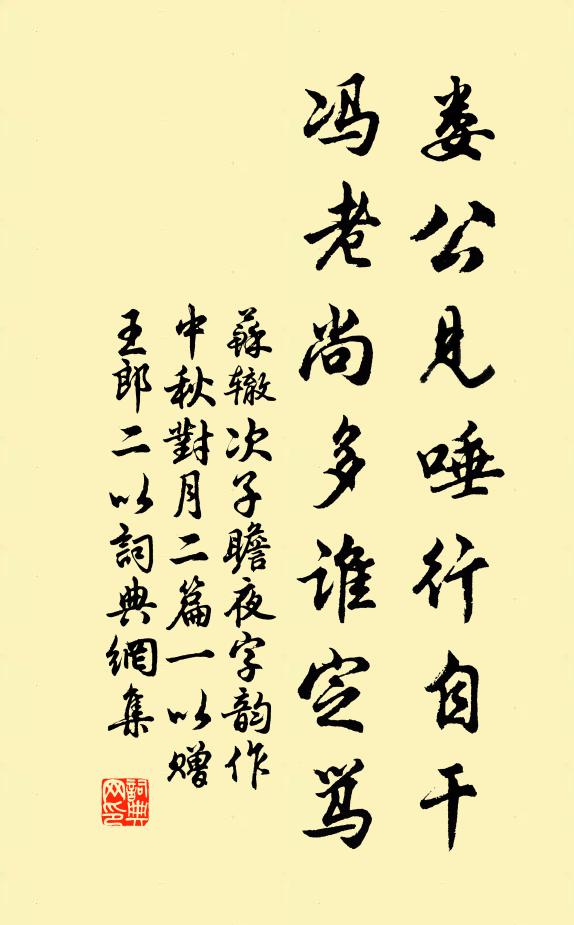 娄公见唾行自干
冯老尚多谁定骂
蘇辙次子瞻夜字韵作
中秋對月二篇一以赠
王郎二以詞典網集
詞典网印